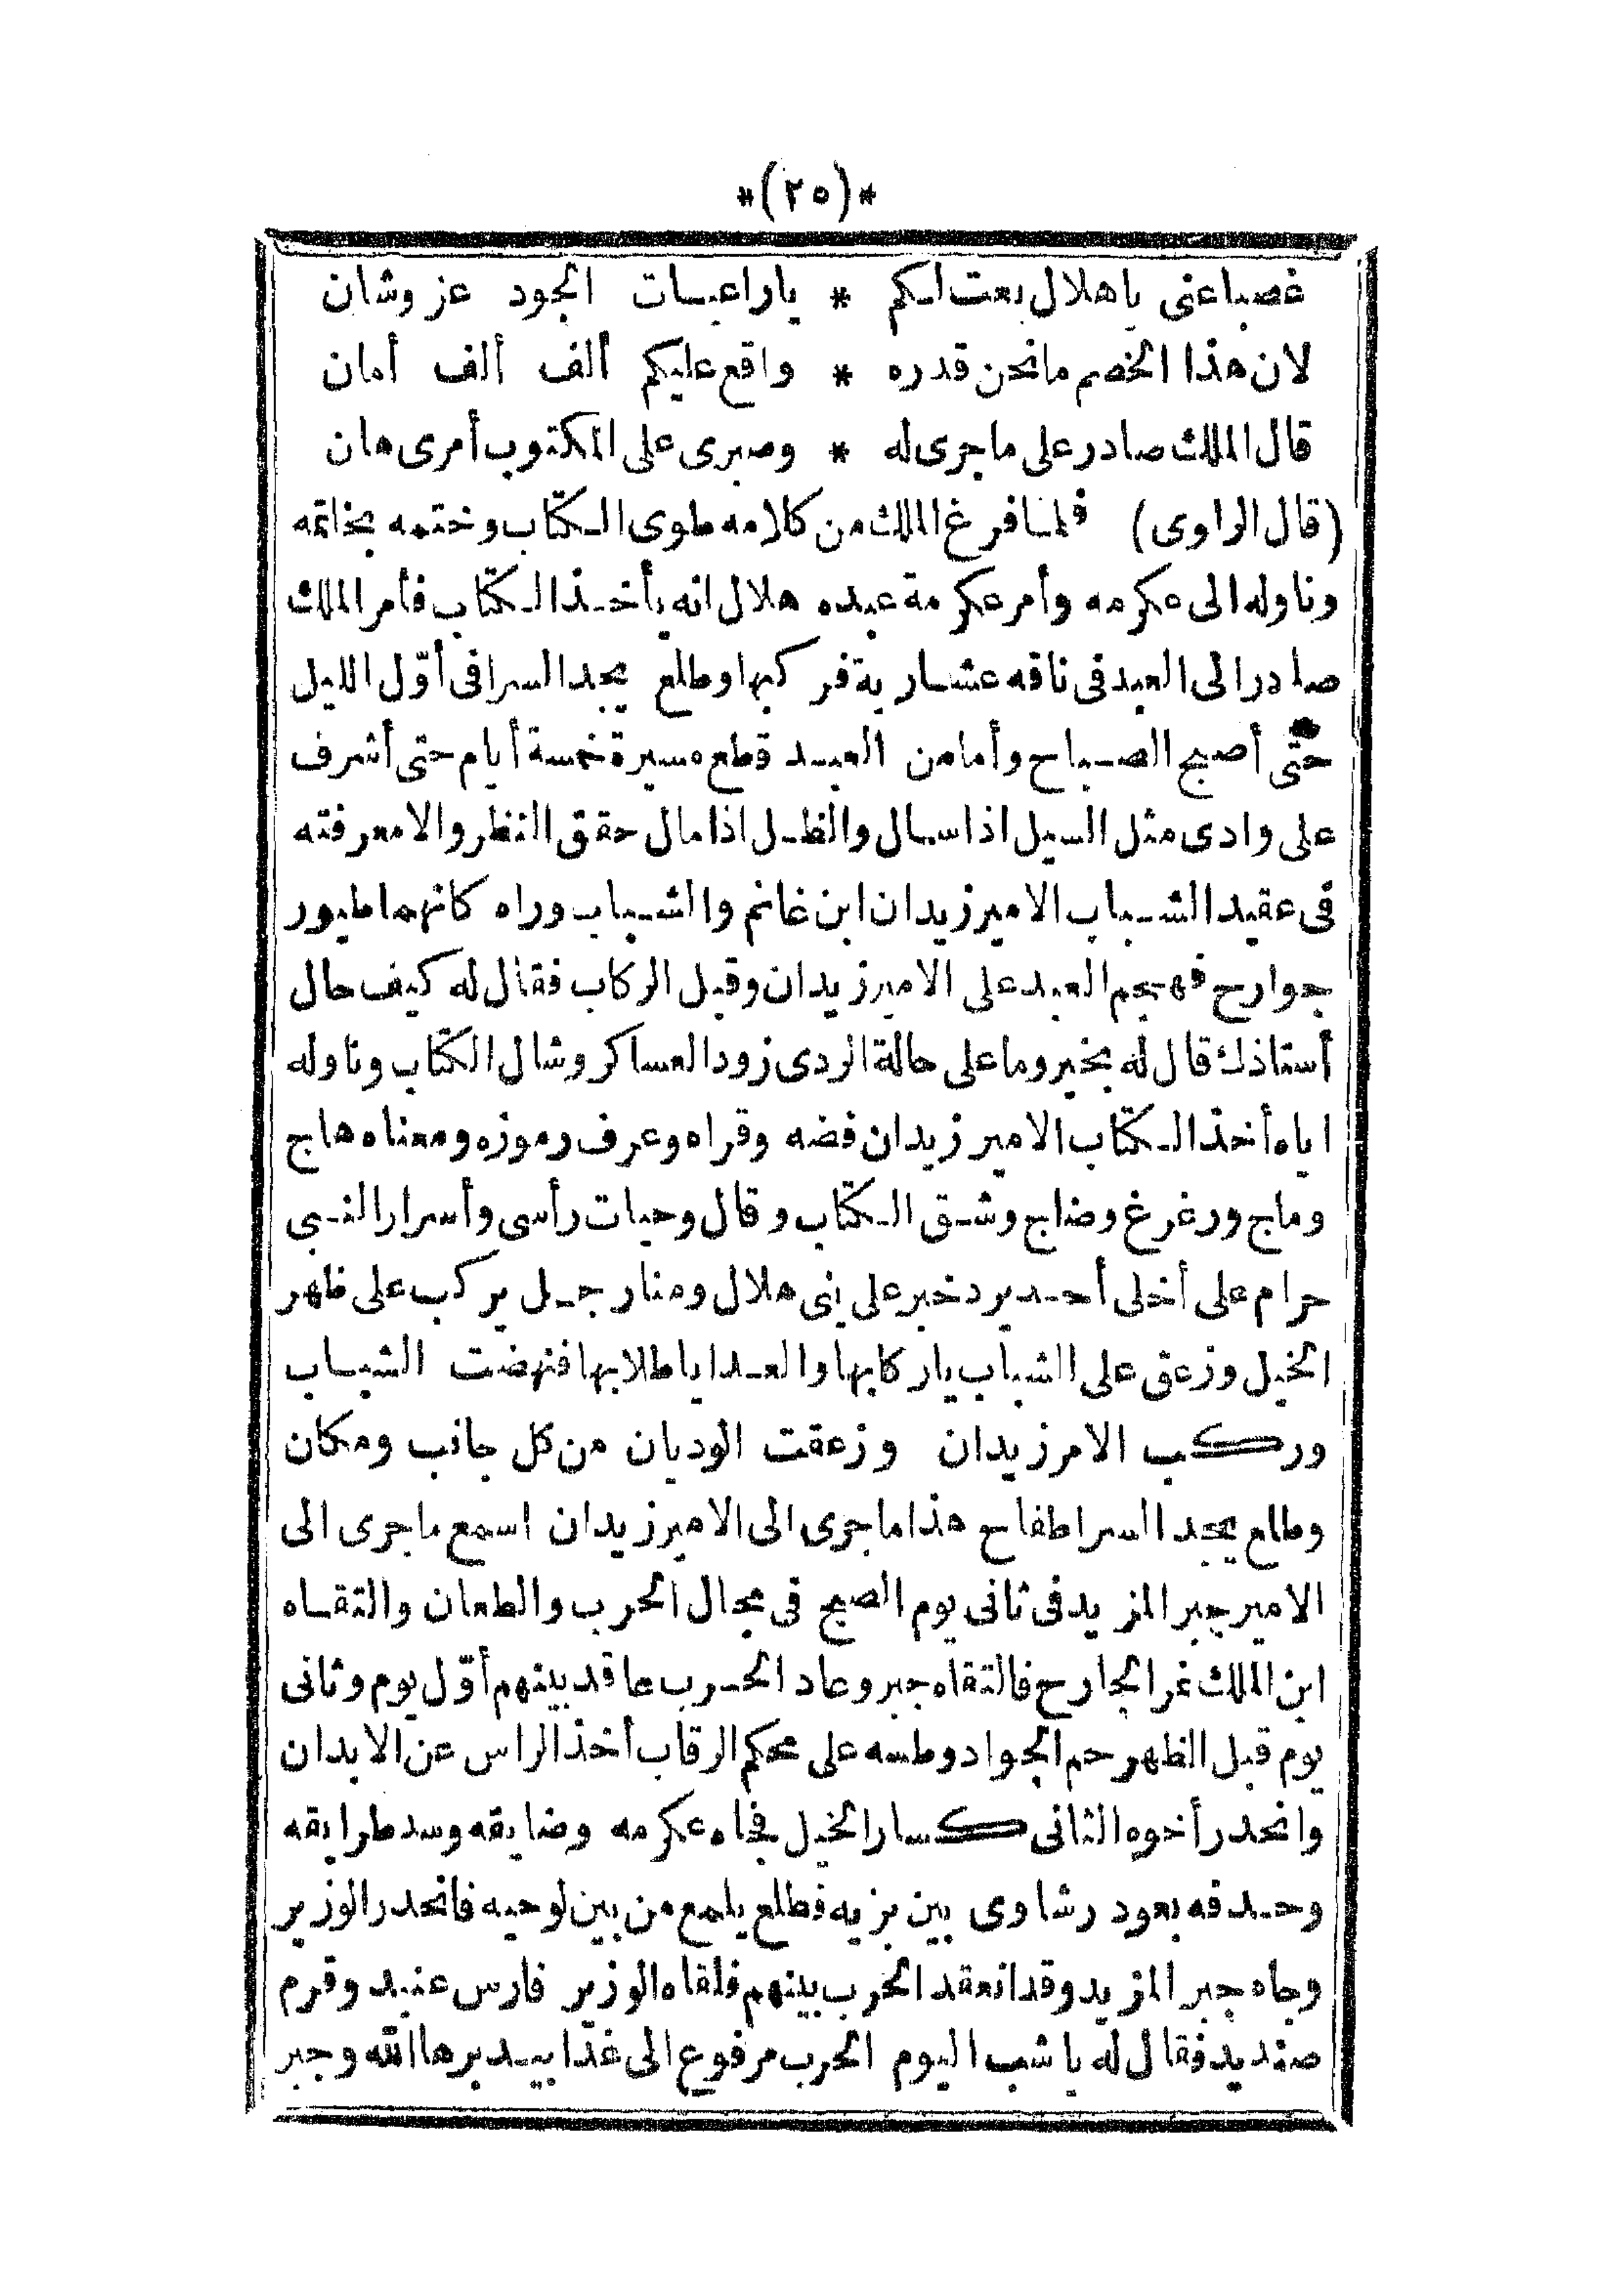 *(٢٥)*
غصبا عنى يا هلال بعت لكم * يا راعيات الجود عز وشان
لان هذا الخصم مانحن قدره * واقع عليكم ألف ألف أمان
قال الملك صادر على ما جرى له * وصبرى على المكتوب أمرى هان
(قال الراوى) فلما فرغ الملك من كلامه طوى الكتاب وختمه بخاتمه
وناوله الى عكرمه وأمر عكرمة عبده هلال انه يأخذ الكتاب فأمر الملك
صادر الى العبد فى ناقه عشارية فركبها وطلع يجد السرا فى أوّل الليل
حتى أصبح الصباح وأمامن العبد قطع مسيرة خمسة أيام حتى أشرف
على وادى مثل السيل اذا سال والظل اذا مال حقق النظر والا معرفته
فى عقيد الشباب الامير زيدان ابن غانم والشباب وراه كانهما طيور
جوارح فهجم العبد على الامير زيدان وقبل الركاب فقال له كيف حال
أستاذك قال له بخير وما على حالة الردى زود العساكر وشال الكتاب وناوله
اياه أخذ الكتاب الامير زيدان فضه وقراه وعرف رموزه ومعناه هاج
وماج ورغرغ وضاج وشق الكتاب وقال وحيات رأسى وأسرار النبى
حرام على أخلى أحد يرد خبر على بنى هلال ومنا رجل يركب على ظهر
الخيل وزعق على الشباب يار كابها والعدا ياطلابها فنهضت الشباب
وركب الامر زيدان وزعقت الوديان من كل جانب ومكان
وطلع يجد السرا طفاح هذا ما جرى الى الامير زيدان اسمع ما جرى الى
الامير جبر المزيد فى ثانى يوم الصبح فى مجال الحرب والطعان والتقاه
ابن الملك نمر الجارح فالتقاه جبر وعاد الحرب عاقد بينهم أوّل يوم وثانى
يوم قبل الظهر حم الجواد وطسه على محكم الرقاب أخذ الراس عن الابدان
وانحدر أخوه الثانى كسار الخيل فجاه عكرمه وضايقه وسد طرايقه
وحدفه بعود رشاوى بين بزيه فطلع يلمع من بين لوحيه فانحدر الوزير
وجاه جبر المزيد وقد انعقد الحرب بينهم فلقاه الوزير فارس عنيد وقرم
صنديد فقال له يا شب اليوم الحرب مرفوع الى غدا بيد برها الله وجبر